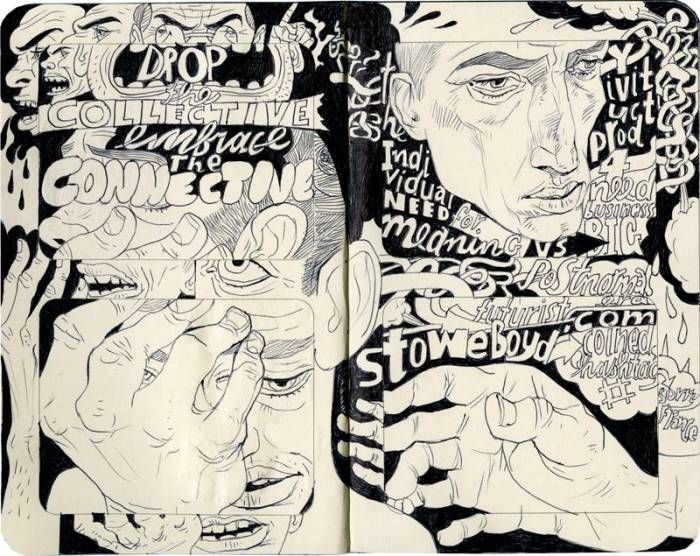 DROP
the
COLLECTIVE
embrace
The
CONNECTIVE
the
Indi
vidual
NEED for
meaning vs
y
ivit
uct
prod
4
need
business
BIG
Postnormal
era
futurist
stoweboyd.com
coined
hashtag
#